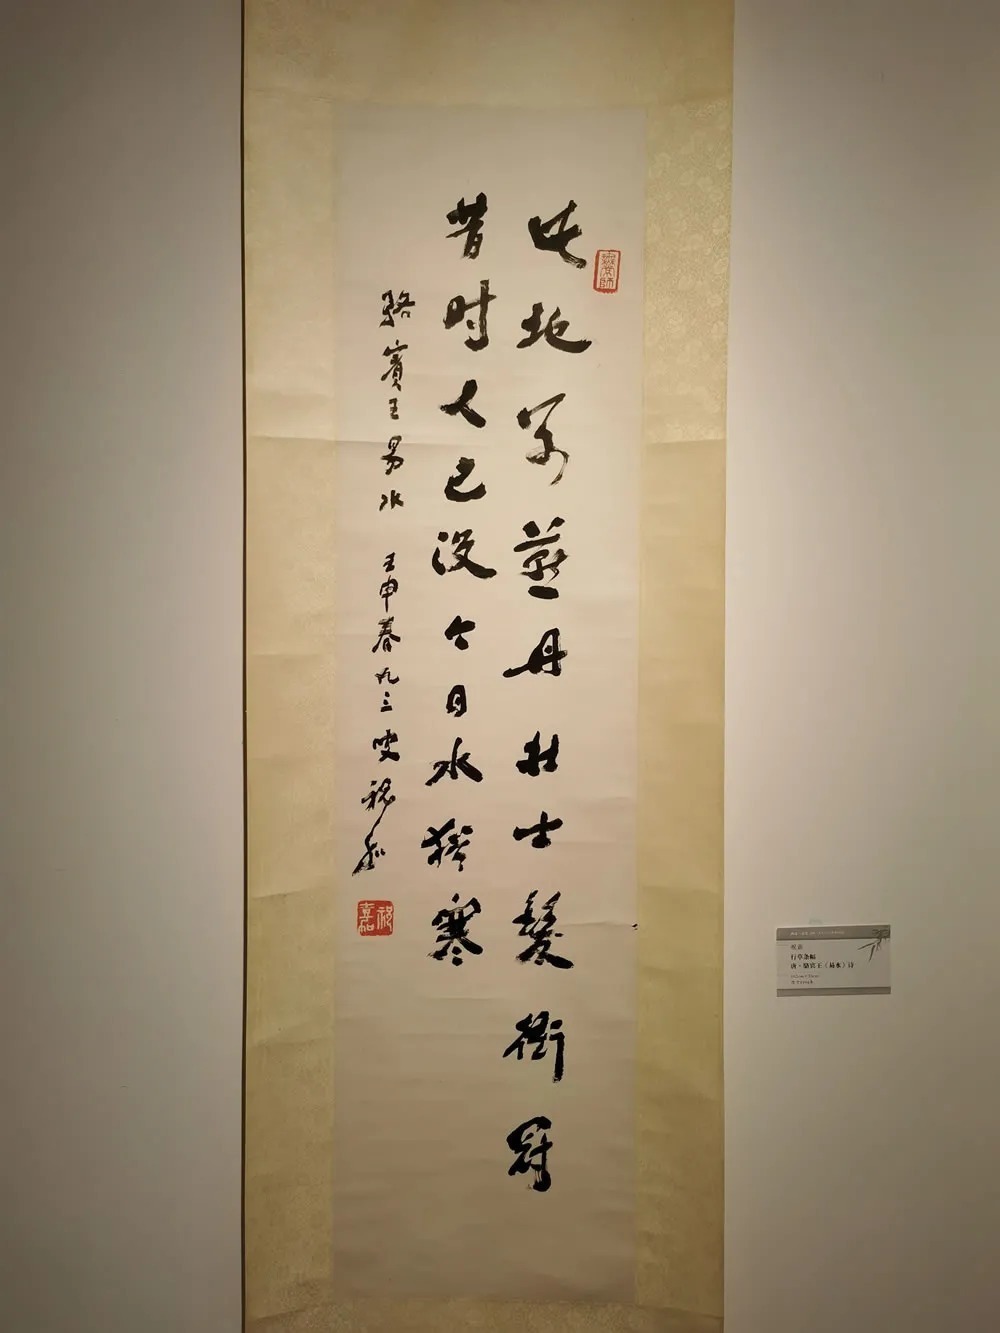 此地别燕丹壮士髮衝冠
昔时人已没今日水猶寒
駱賓王易水 壬申春九三叟祝嘉
祝嘉
祝嘉
行草条幅
唐·骆宾王《易水》诗